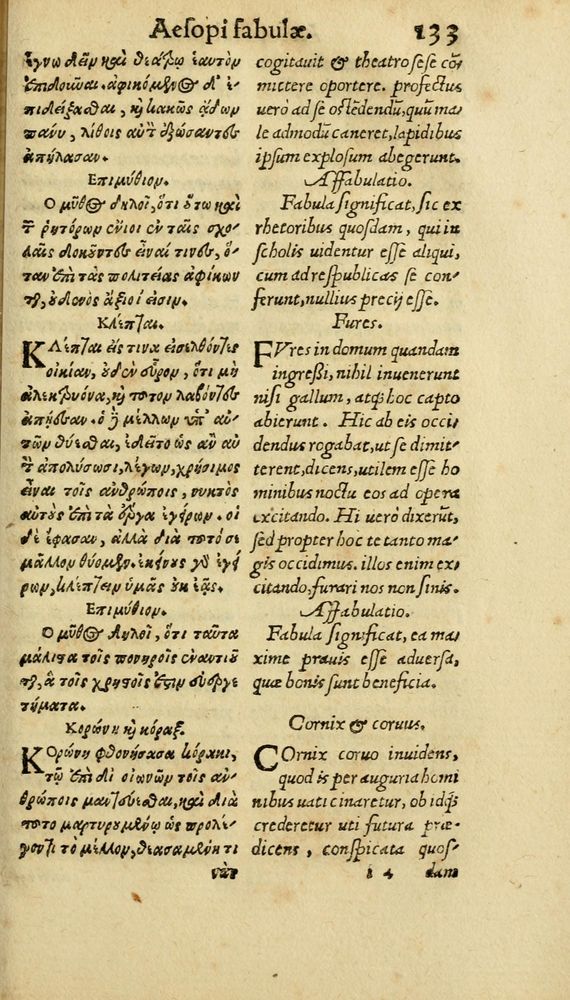 Aesopi fabulæ. 133
ἔγνω δεῖν καὶ θεάτρῳ ἑαυτὸν
ἐπιδοῦναι. ἀφικόμενος δ' ἐ-
πιδείξασθαι, καὶ κακῶς ᾄδων
πάνυ, λίθοις αὐτὸν ἐξώσαντες
ἀπήλασαν.
Επιμύθιον.
Ο μῦθος δηλοῖ, ὅτι οὕτω καὶ
τῶν ῥητόρων ἔνιοι ἐν ταῖς σχο-
λαῖς δοκοῦντες εἶναί τινες, ὅ-
ταν ἐπὶ τὰς πολιτείας ἀφίκων
ται, οὐδενὸς ἄξιοί εἰσιν.
Κλέπται.
ΚΛέπται εἴς τινα εἰσελθόντες
οἰκίαν, οὐδὲν εὗρον, ὅτι μὴ
ἀλεκτρυόνα, καὶ τοῦτον λαβόντες
ἀπῄεσαν. ὁ δὲ μέλλων ὑπ' αὐ-
τῶν θύεσθαι, ἐδεῖτο ὡς ἂν αὐ
τὸν ἀπολύσωσι, λέγων, χρήσιμος
εἶναι τοῖς ἀνθρώποις, νυκτὸς
αὐτοὺς ἐπὶ τὰ ἔργα ἐγείρων. οἱ
δὲ ἔφασαν, ἀλλὰ διὰ τοῦτό σε
μᾶλλον θύομεν. ἐκείνους γὰρ ἐγεί
ρων, κλέπτειν ἡμᾶς οὐκ ἐᾷς.
Επιμύθιον.
Ο μῦθος δηλοῖ, ὅτι ταῦτα
μάλιστα τοῖς πονηροῖς ἐναντιοῦ
ται, ἃ τοῖς χρηστοῖς ἐστιν εὐεργε
τήματα.
Κορώνη καὶ κόραξ.
ΚΟρώνη φθονήσασα κόρακι,
τῷ ἐπὶ δι οἰωνῶν τοῖς ἀν-
θρώποις μαντεύεσθαι, καὶ διὰ
τοῦτο μαρτυρουμένῳ ὡς προλέ-
γοντι τὸ μέλλον, θεασαμένη τι
νὰς
cogitauit & theatro sese cõ
mittere oportere. profectus
uerò ad se ostẽdendũ, quũ ma-
le admodũ caneret, lapidibus
ipsum explosum abegerunt.
Affabulatio.
Fabula significat, sic ex
rhetoribus quosdam, qui in
scholis uidentur esse aliqui,
cum ad respublicas se con-
ferunt, nullius precij esse.
Fures.
FVres in domum quandam
ingreßi, nihil inuenerunt
nisi gallum, atq; hoc capto
abierunt. Hic ab eis occi-
dendus rogabat, ut se dimit-
terent, dicens, utilem esse ho
minibus noctu eos ad opera
excitando. Hi uerò dixerũt,
sed propter hoc te tanto ma-
gis occidimus. illos enim ex-
citando, furari nos non sinis.
Affabulatio.
Fabula significat, ea ma-
xime prauis esse aduersa,
quæ bonis sunt beneficia.
Cornix & coruus.
COrnix coruo inuidens,
quod is per auguria homi
nibus uaticinaretur, ob idq́;
crederetur uti futura præ-
dicens, conspicata quos-
i 4 dam